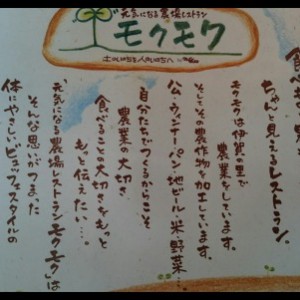 元気になる農場レストラン
モクモク
ちゃんと見えるレストラン。
モクモクは伊賀の里で
農業をしています。
そしてその農作物を加工しています。
ハム・ウィンナー・パン・地ビール・米・野菜…
自分たちでつくるからこそ
農業の大切さ
食べることの大切さをもっと
もっと伝えたい…。
そんな思いがつまった
"元気になる農場レストランモクモク"は
体にやさしいビュッフェスタイルの